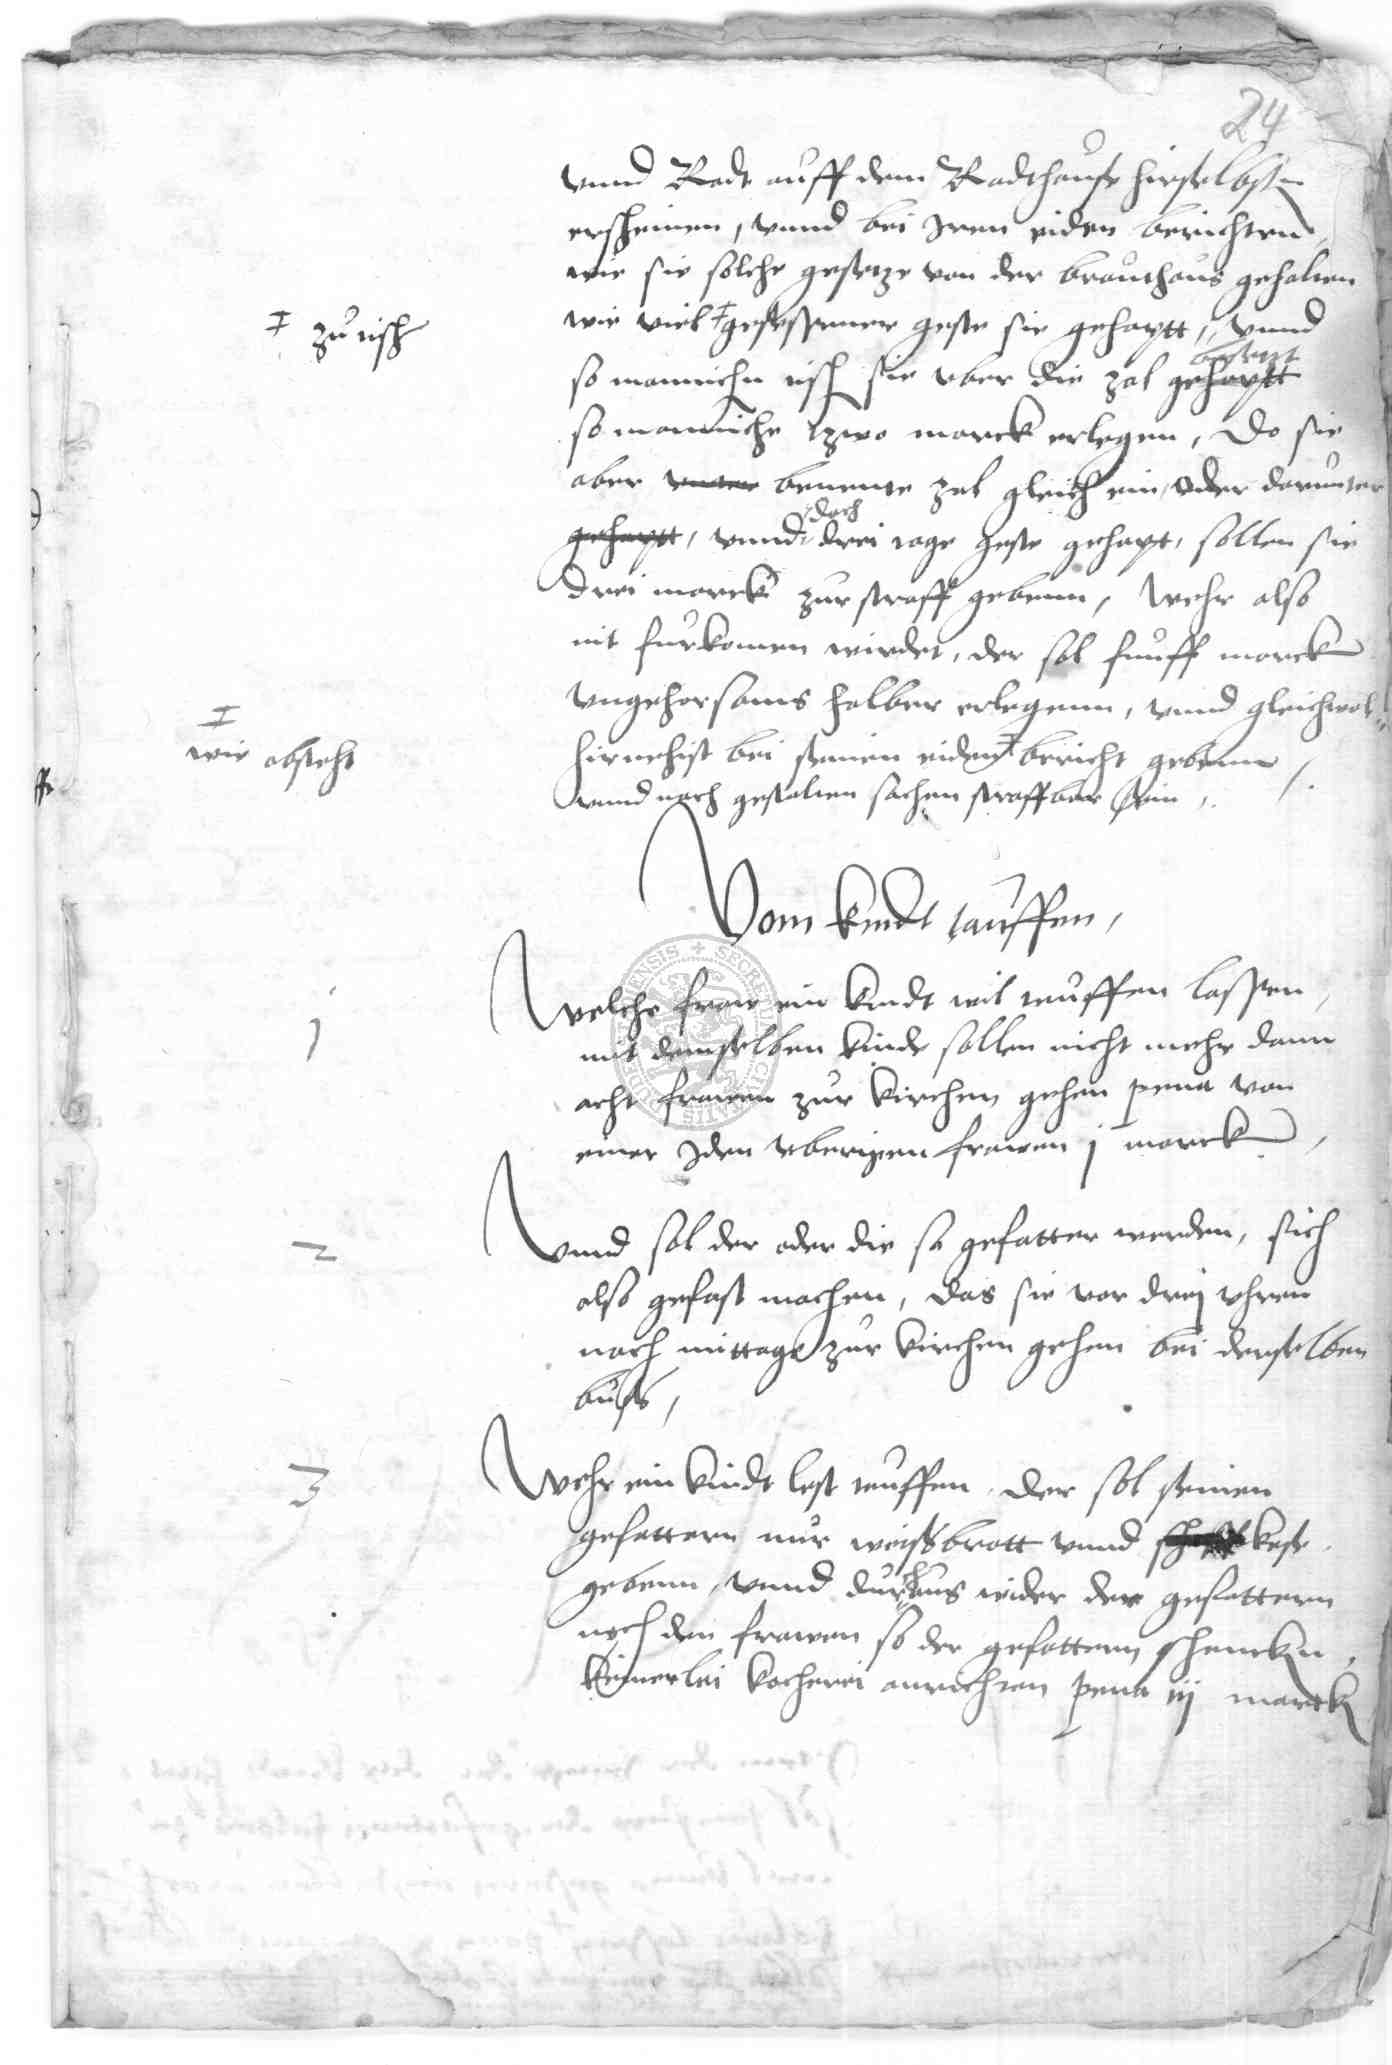 24
vnnd Radt auff dem Radthause hirselbst
erscheinen, vnnd bei Iren eiden berichten,
wie sie solche gesetze von der brauthaus gehalten
wie viel ǂ gesessener geste sie gehaptt, vnnd
ǂ zu tisch
besetzt
so mannichen tisch sie vber die zal gehaptt
so manniche tzwo marck erlegen, Do sie
aber vnter benente zal gleich ein, Oder darunter
doch
gehaptt, vnnd drei tage geste gehapt, sollen sie
drei marck zur straff gebenn, Wehr also
nit furkomen wirdet, der sol funff marck
vngehorsams halber erlegenn, vnnd gleichwol
ǂ
wie obsteht
hirnehist bei seinen eiden ǂ bericht gebenn
vnnd nach gestalten sachen straffbar sein,
Vom kindt tauffen,
1
Welche fraw ein kindt wil teuffen lassen,
mit demselben kinde sollen nicht mehr dann
acht frawen zur kirchen gehen pena von
einer Iden vberigen frawen j marck,
2
Vnnd sol der oder die so gefatter werden, sich
also gefast machen, das sie vor drej vhren
nach mittage zur kirchen gehen bei derselben
buss,
3
Wehr ein kindt lest teuffen, der sol seinen
gefattern nur weissbrott vnnd kese
gebenn, vnnd durchaus wider den gefattern
noch den frawen so der gefattern schencken,
keinerlei kocherei anrichten pena iij marck